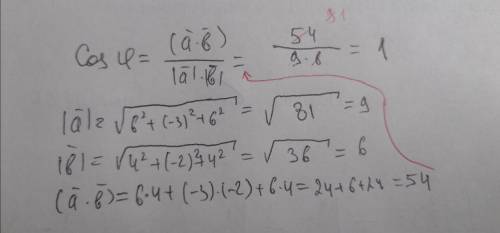 Cos φ = (ā·b̄) / |ā|·|b̄| = 54 / 9·6 = 1
|ā| = √6² + (-3)² + 6² = √81 = 9
|b̄| = √4² + (-2)² + 4² = √36 = 6
(ā·b̄) = 6·4 + (-3)·(-2) + 6·4 = 24 + 6 + 24 = 54